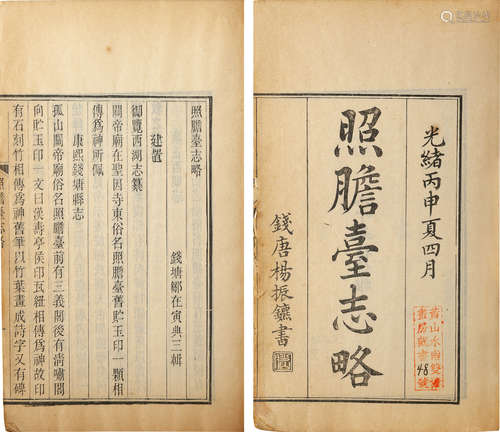 光緒丙申夏四月
照膽臺志略
錢唐楊振鑣書
48
照膽臺志略
錢塘鄒在寅典三輯
建置
御覽西湖志纂
關帝廟在聖因寺東俗名照膽臺舊貯玉印一顆相
傳爲神所佩
康熙錢塘縣志
孤山關帝廟俗名照膽臺前有三義閣後有清嘯閣
向貯玉印一文曰漢壽亭侯印瓦紐相傳爲神故印
有石刻竹相傳爲神舊筆以竹葉畫成詩字又有碑
照膽臺志略